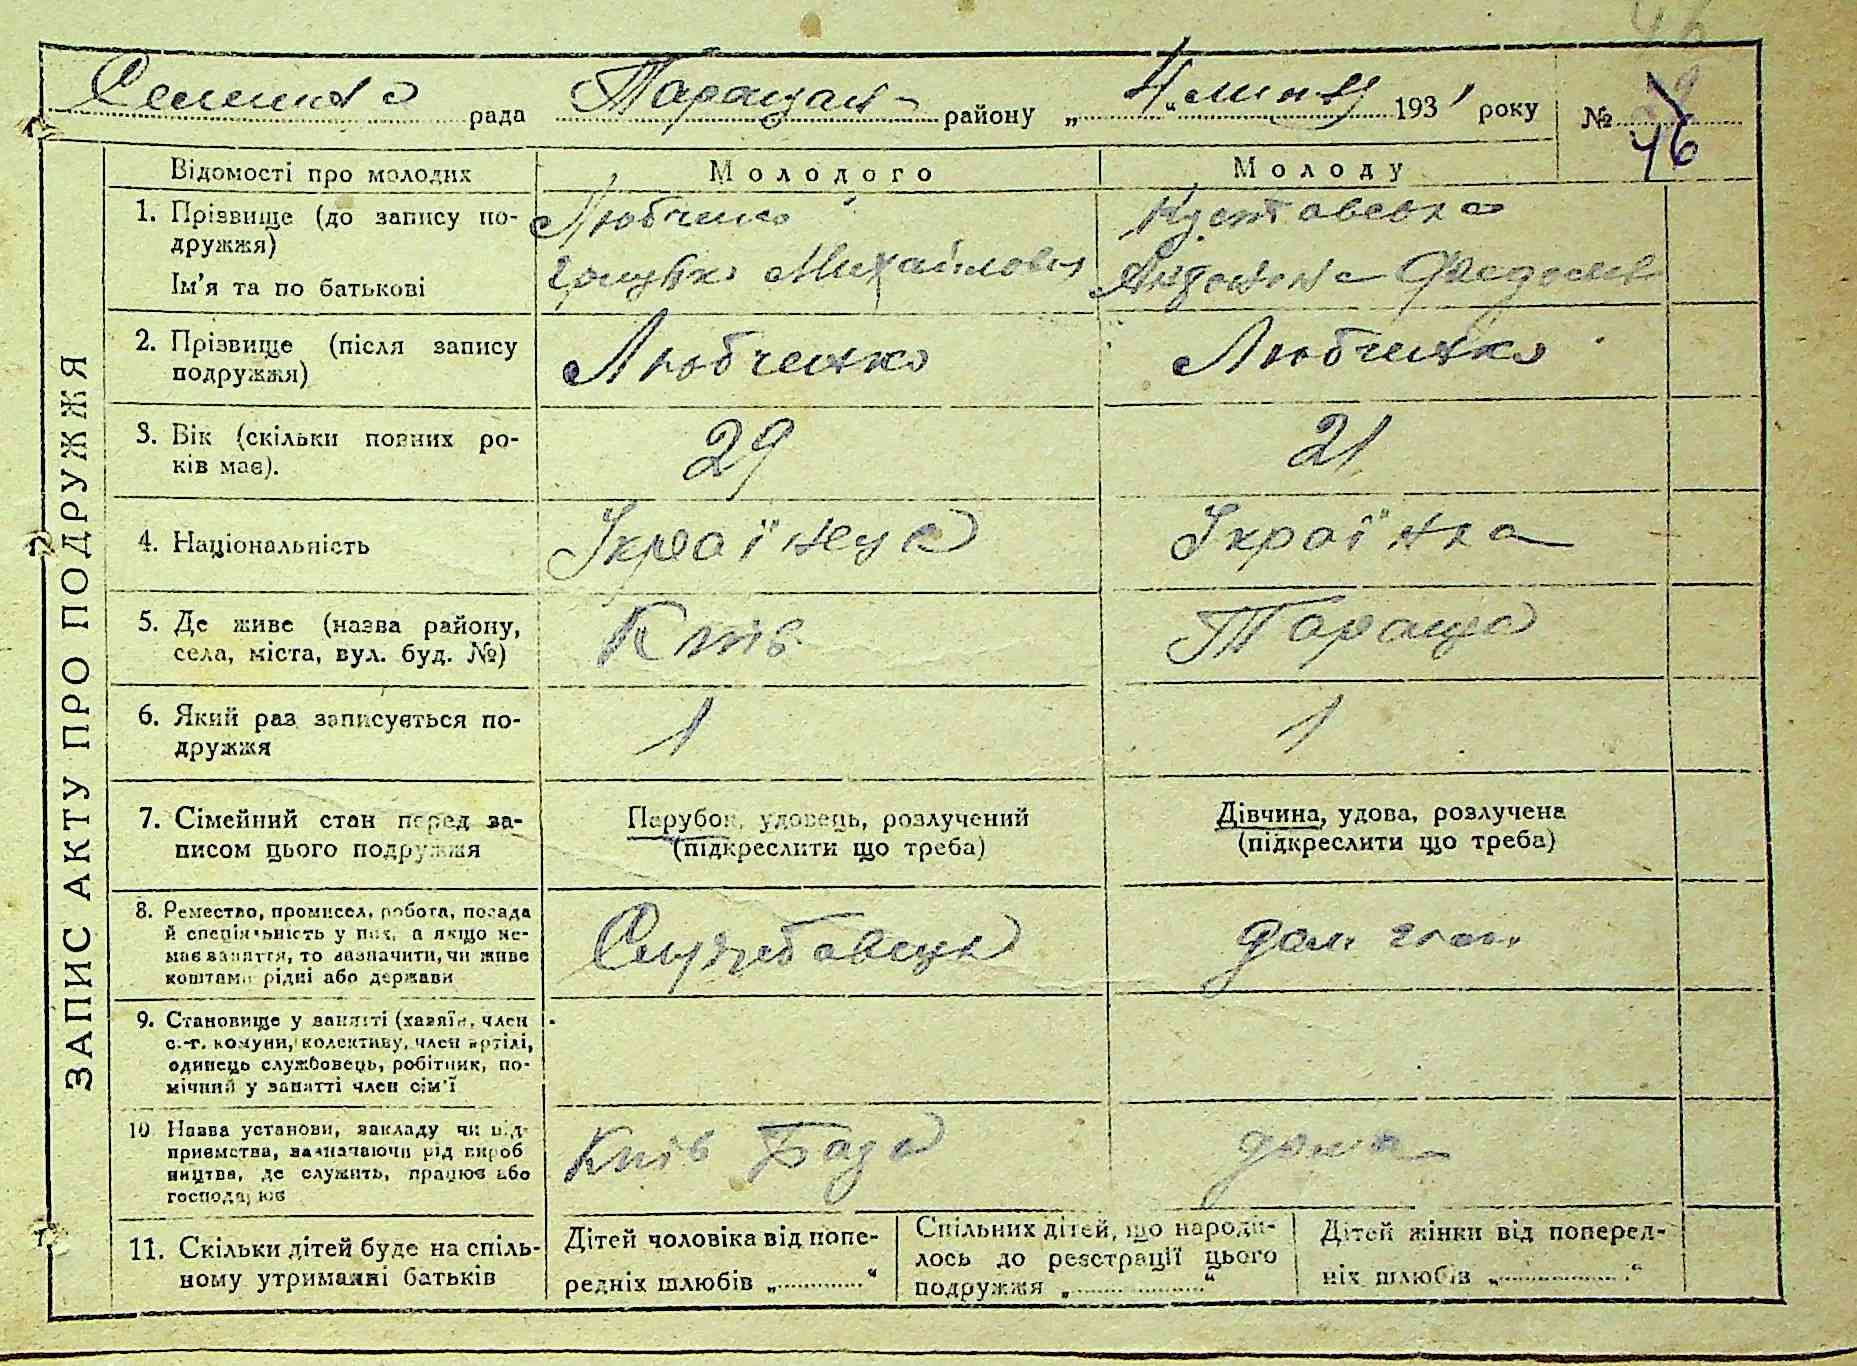 Селищна рада Таращан- району „ 4 " липня 1931 року № 46
ЗАПИС АКТУ ПРО ПОДРУЖЖЯ
Відомості про молодих Молодого Молоду
1. Прізвище (до запису по-
дружжя)
Ім'я та по батькові
Любченко
Михайлович
2. Прізвище (після запису
подружжя)
Любченко Любченко
3. Вік (скільки повних ро-
ків має).
29 21
4. Національність Українець Українка
5. Де живе (назва району,
села, міста, вул. буд. №)
Київ Тараща
6. Який раз записується по-
дружжя
1 1
7. Сімейний стан перед за-
писом цього подружжя
Парубок, удовець, розлучений
(підкреслити що треба)
Дівчина, удова, розлучена
(підкреслити що треба)
8. Ремество, промисел, робота, посада
й спеціяльність у них, а якщо не-
має заняття, то зазначити, чи живе
коштами рідні або держави
Службовець дом. госп.
9. Становище у занятті (хазяїн, член
с.-г. комуни, колективу, член артілі,
одинець службовець, робітник, по-
мічний у занятті член сім'ї
10 Назва установи, закладу чи під-
приємства, зазначаючи рід вироб
ництва, де служить, працює або
господарює
Київ База дома
11. Скільки дітей буде на спіль-
ному утриманні батьків
Дітей чоловіка від попе-
редніх шлюбів „ "
Спільних дітей, що народи-
лось до реєстрації цього
подружжя „ "
Дітей жінки від поперед-
ніх шлюбів „ "